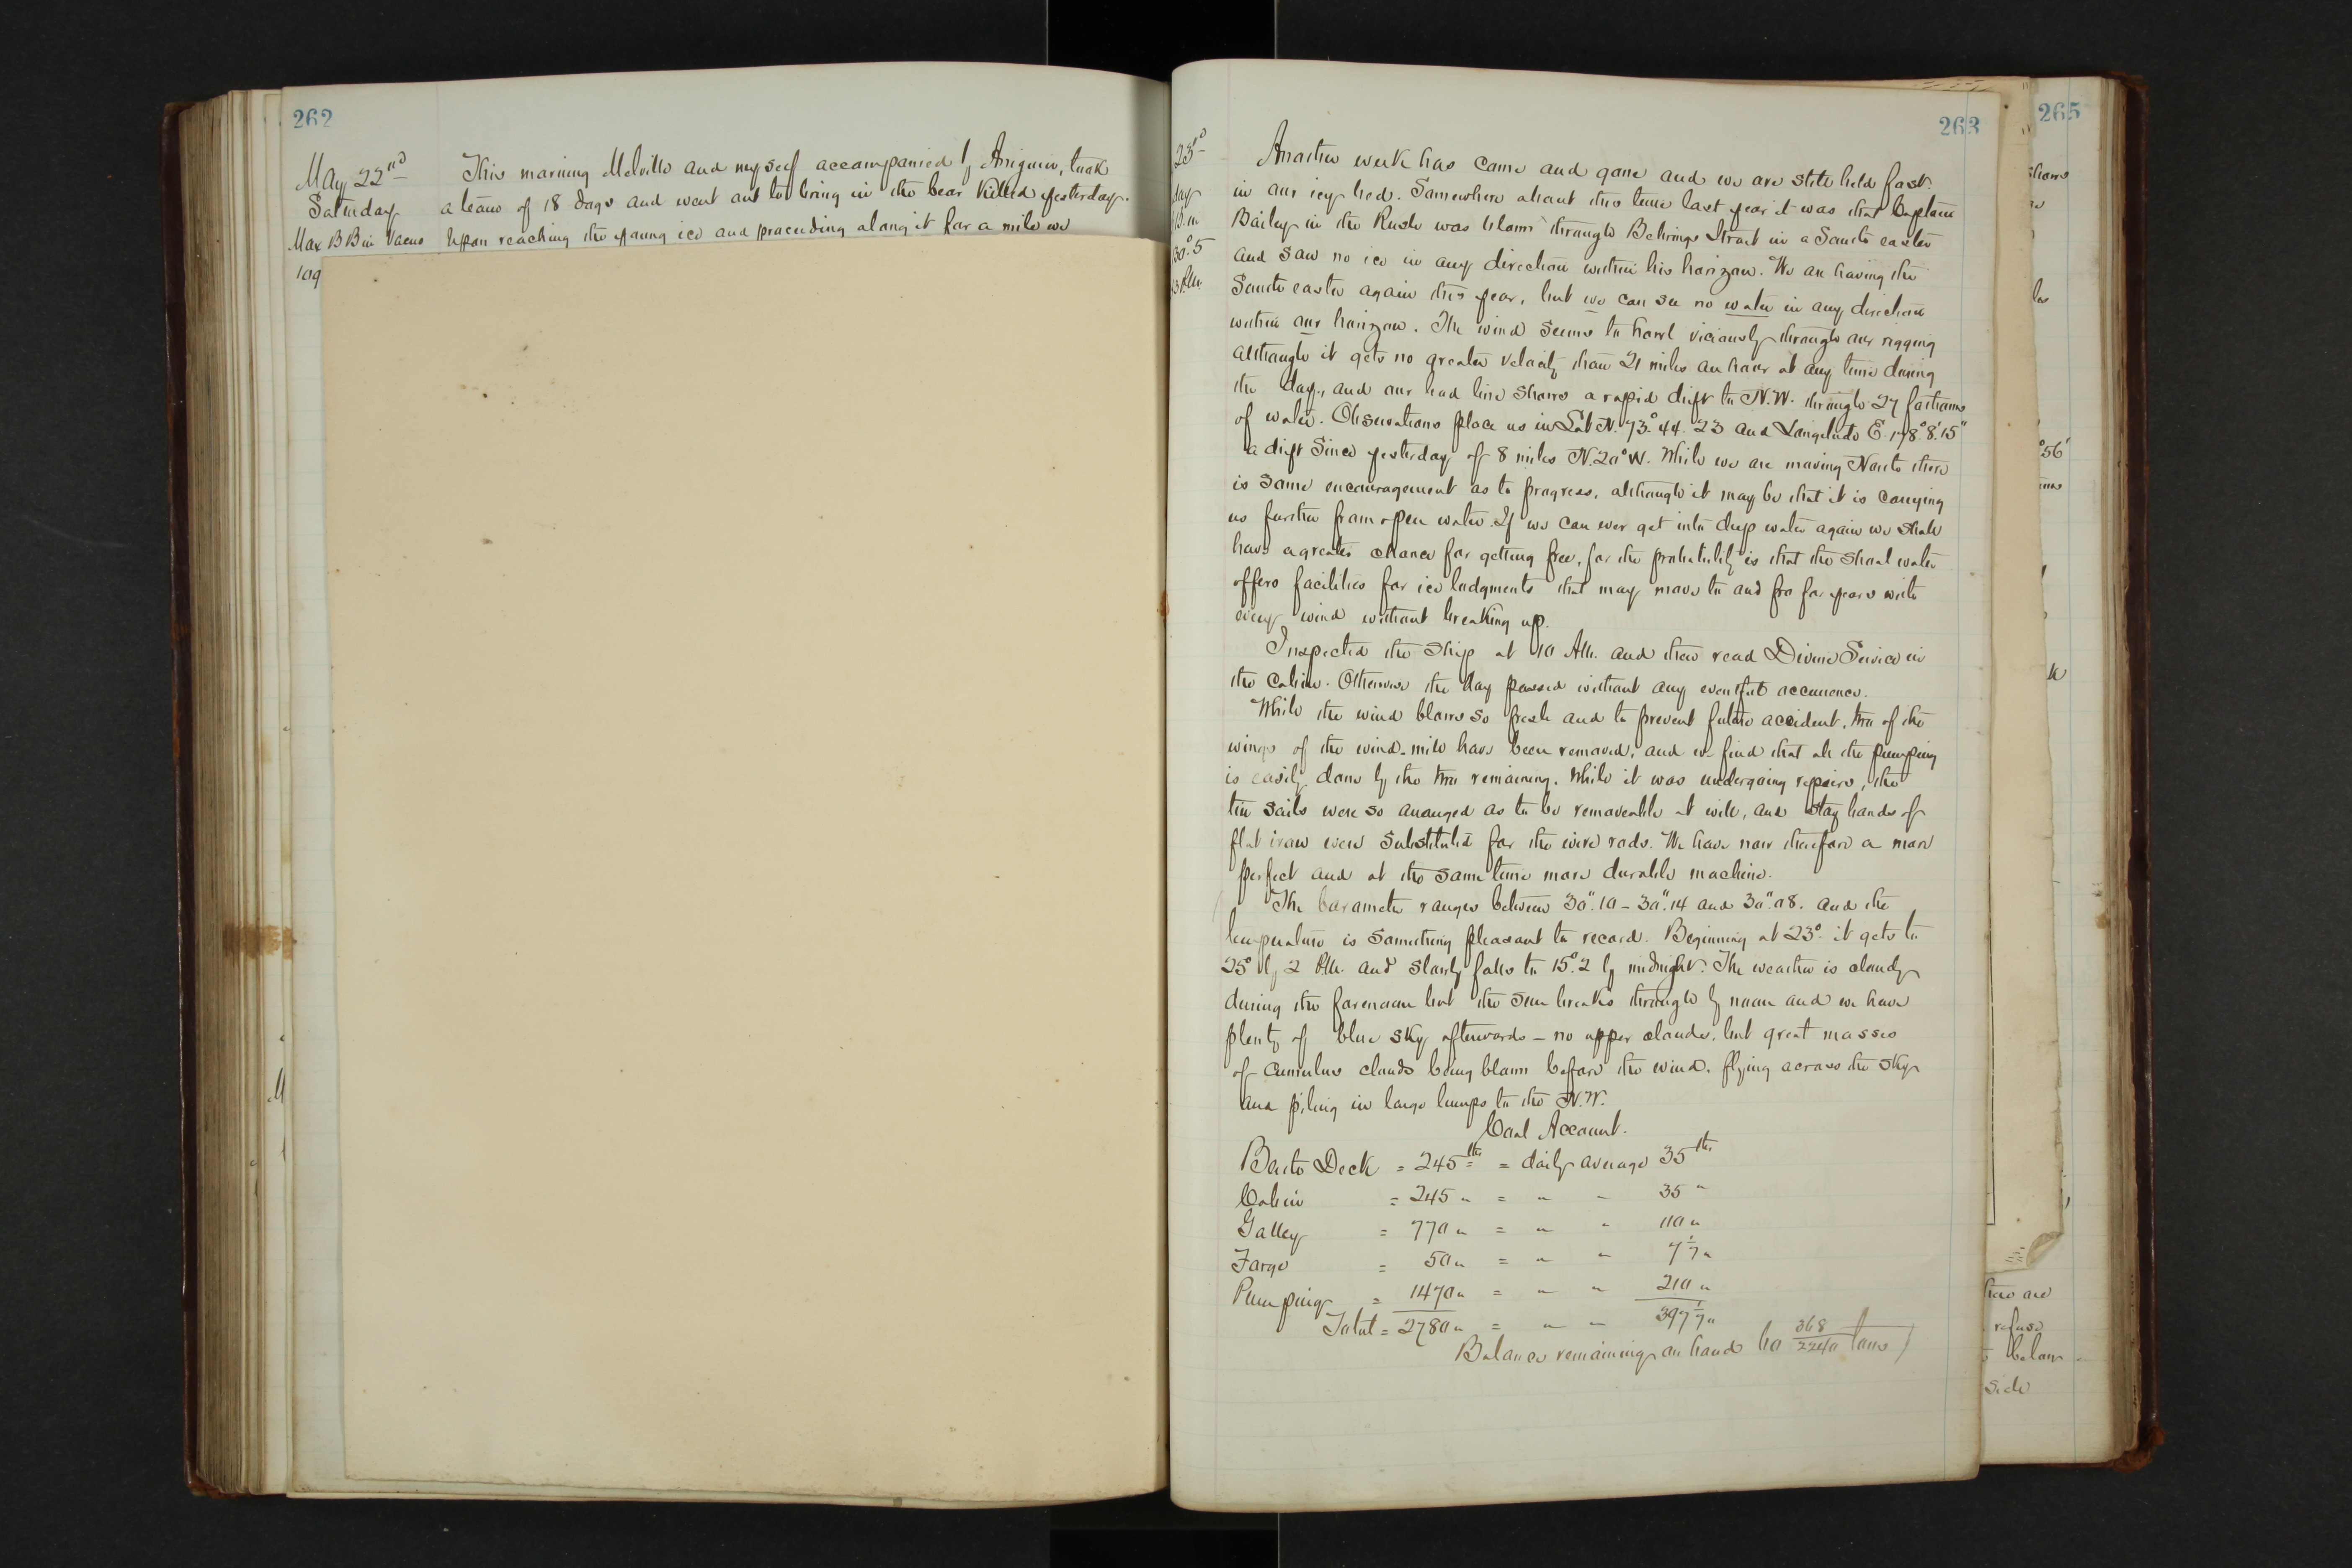 262
May 22nd This morning Melville and myself accompanied by Aniguin, took
Saturday a team of 18 dogs and went out to bring in the bear killed yesterday.
Max B Bin Vacuo Upon reaching the young ice and proceeding along it for a mile we
109
263
23d Another week has come and gone and we are still held fast
day in our icy bed. Somewhere about this time last year it was that Captain
Bailey in the Rush was blown through Behrings Strait in a South easter
30°.5 and saw no ice in any direction within his horizon. We are having the
South easter again this year, but we can see no water in any direction
within our horizon. The wind seems to howl viciously through our rigging
although it gets no greater velocity than 21 miles an hour at any time during
the day, and our lead line shows a rapid drift to N.W. through 27 fathoms
of water. Observations place us in Lat N. 73°. 44. 23 and Longitude E. 178° 8' 15"
a drift since yesterday of 8 miles N. 20° W. While we are moving North there
is some encouragement as to progress, although it may be that it is carrying
us further from open water. If we can ever get into deep water again we shall
have a greater chance for getting free, for the probability is that the shoal water
offers facilities for ice lodgments that may move to and fro for years with
every wind without breaking up.
Inspected the ship at 10 AM. and then read Divine Service in
the cabin. Otherwise the day passed without any eventful occurrence.
While the wind blows so fresh and to prevent future accident, two of the
wings of the wind-mill have been removed, and we find that all the pumping
is easily done by the two remaining. While it was undergoing repairs, the
tin sails were so arranged as to be removeable at will, and stay bands of
flat iron were substituted for the wire rods. We have now therefore a more
perfect and at the same time more durable machine.
The barometer ranges between 30".10 - 30".14 and 30".08. and the
temperature is something pleasant to record. Beginning at 23° it gets to
25° by 2 P.M. and slowly falls to 15°.2 by midnight. The weather is cloudy
during the forenoon but the sun breaks through by noon and we have
plenty of blue sky afterwards - no upper clouds, but great masses
of cumulus clouds being blown before the wind, flying across the sky
and piling in large lumps to the N.W.
Coal Account.
Berth Deck = 245 lbs = daily average 35 lbs
Cabin = 245 " = " " 35 "
Galley = 770 " = " " 110 "
Forge = 50 " = " " 7 1/7 "
Pumping = 1470 " = " " 210 "
Total = 2780 " = " " 397 1/7 "
Balance remaining on hand 60 368/2240 tons)
265
shows
56'
have are
refuse
below
side